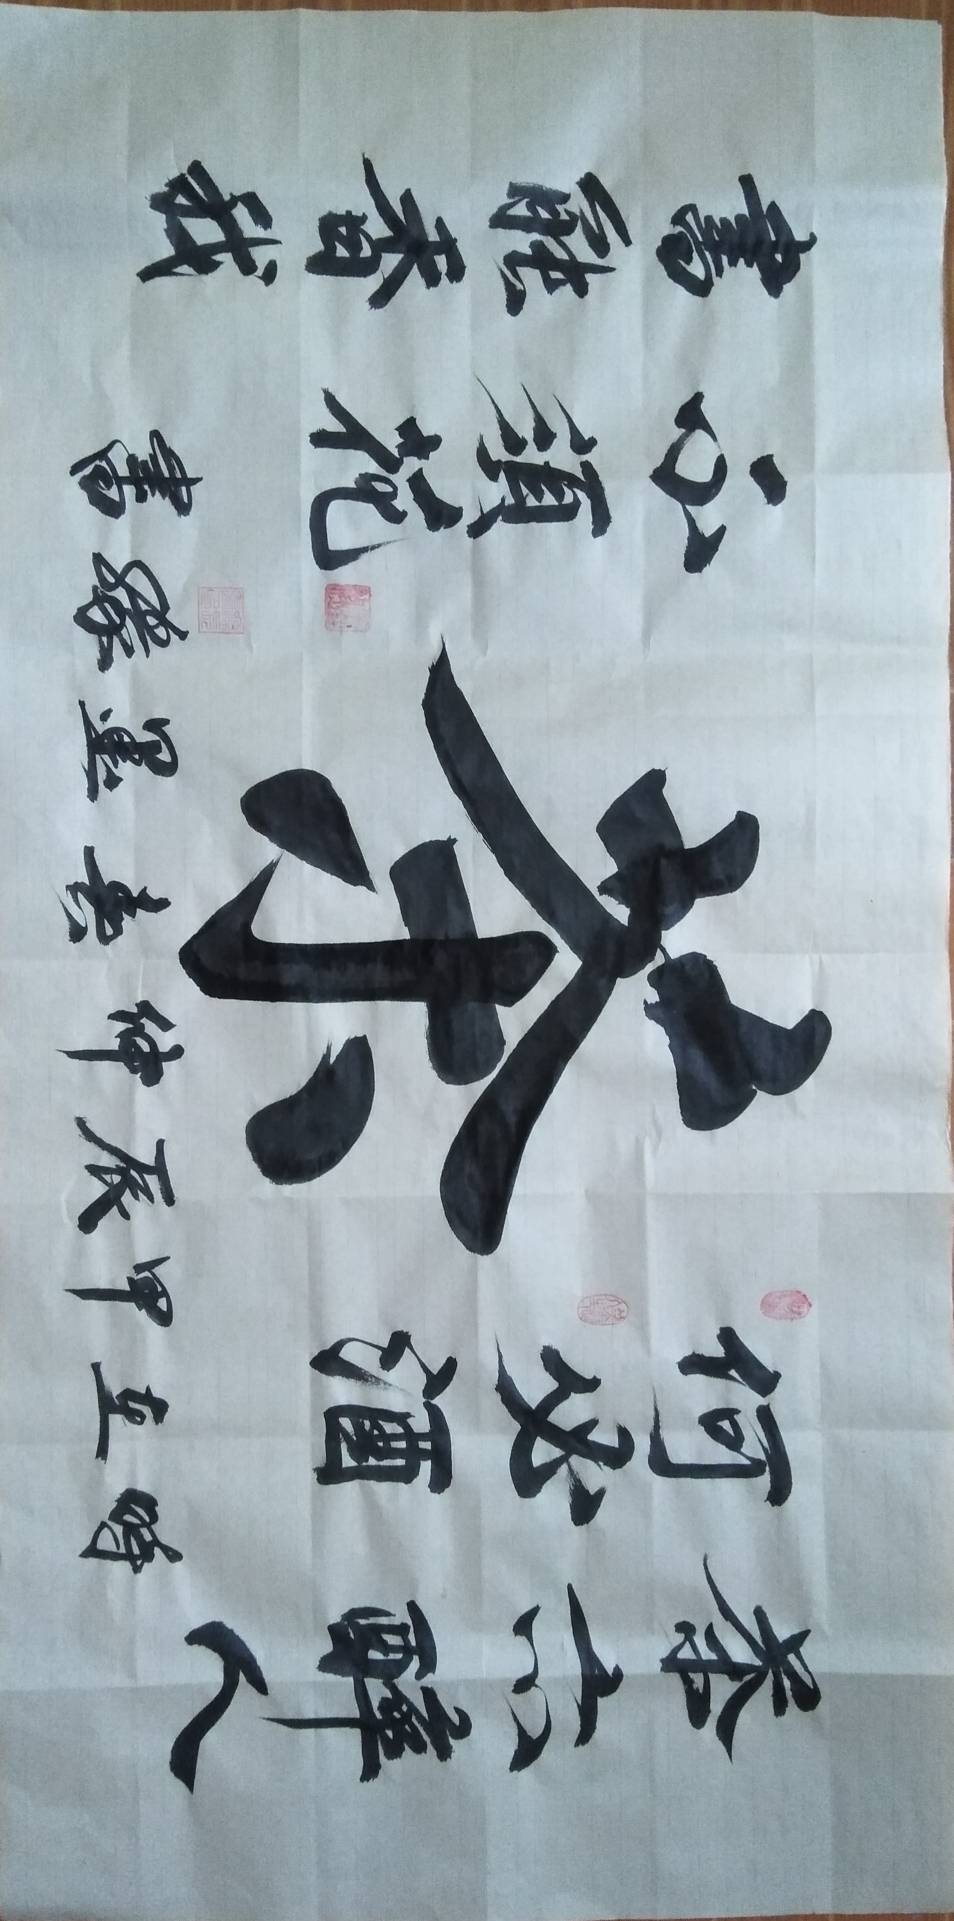 茶亦醉人
何必酒
茶
書能香我
不須花
時在甲辰仲春墨緣書